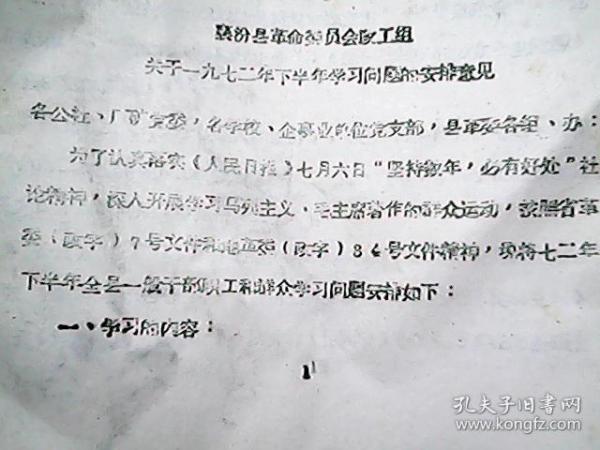 襄汾县革命委员会政工组
关于一九七二年下半年学习问题的安排意见
各公社、厂矿党委，各学校、企事业单位党支部，县革委各组、办：
为了认真落实《人民日报》七月六日“坚持数年，必有好处”社
论精神，深入开展学习马列主义、毛主席著作的群众运动，按照省革
委（政字）7号文件和地革委（政字）34号文件精神，现将七二年
下半年全县一般干部职工和群众学习问题安排如下：
一、学习的内容：
1
孔夫子旧书网
www.kongfz.com